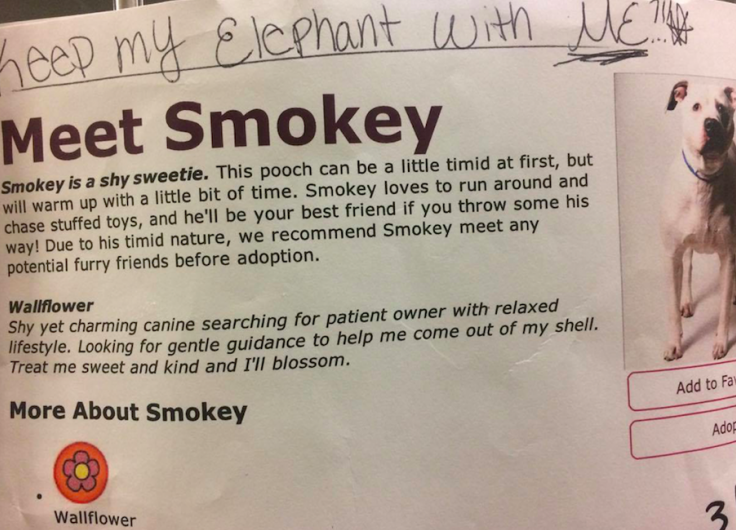 keep my Elephant with ME...!!
Meet Smokey
Smokey is a shy sweetie. This pooch can be a little timid at first, but
will warm up with a little bit of time. Smokey loves to run around and
chase stuffed toys, and he'll be your best friend if you throw some his
way! Due to his timid nature, we recommend Smokey meet any
potential furry friends before adoption.
Wallflower
Shy yet charming canine searching for patient owner with relaxed
lifestyle. Looking for gentle guidance to help me come out of my shell.
Treat me sweet and kind and I'll blossom.
More About Smokey
Wallflower
Add to Fav
Adop
3